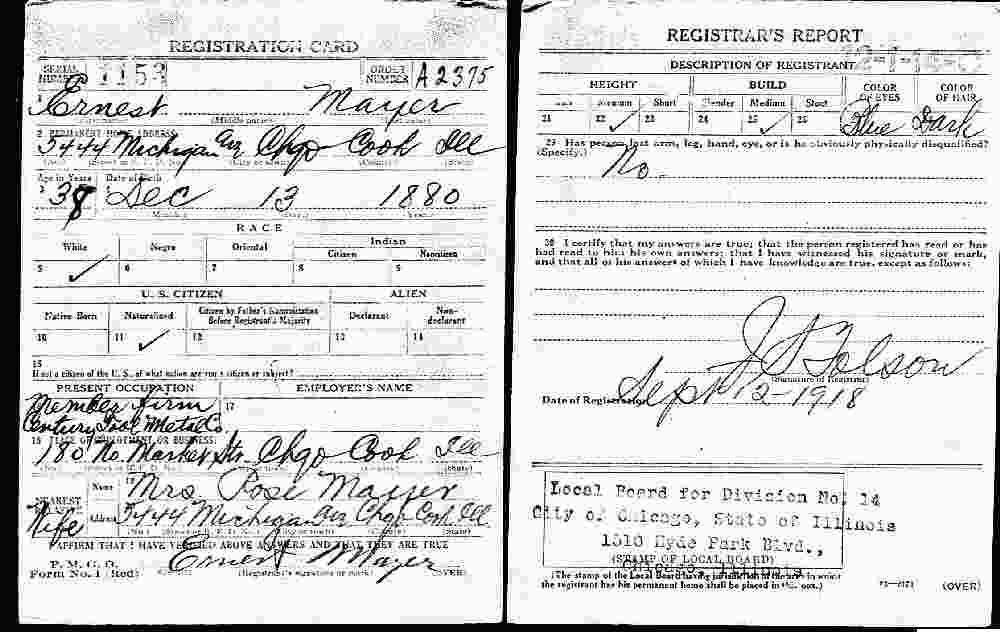 REGISTRATION CARD
SERIAL NUMBER 1153 ORDER NUMBER A2375
1 Ernest Mayer
(Middle name)
2 PERMANENT HOME ADDRESS:
5444 Michigan Av Chgo Cook Ill
Age in Years Date of Birth
38 Dec 13 1880
RACE
White Negro Oriental Indian
Citizen Noncitizen
5 ✓ 6 7 8 9
U. S. CITIZEN ALIEN
Native Born Naturalized Citizen by Father's Naturalization Before Registrant's Majority Declarant Non-declarant
10 11 ✓ 12 13 14
15
If not a citizen of the U. S., of what nation are you a citizen or subject?
PRESENT OCCUPATION EMPLOYER'S NAME
Member Firm 17
Century Tool Metal Co
18 PLACE OF EMPLOYMENT OR BUSINESS:
180 No. Market Str. Chgo Cook Ill
NEAREST Name Mrs Rose Mayer
Wife Address 5444 Michigan Av Chgo Cook Ill
I AFFIRM THAT I HAVE VERIFIED ABOVE ANSWERS AND THAT THEY ARE TRUE
P. M. G. O.
Form No. 1 (Red) Ernest Mayer
(Registrant's signature or mark) (OVER)
REGISTRAR'S REPORT
DESCRIPTION OF REGISTRANT
HEIGHT BUILD COLOR OF EYES COLOR OF HAIR
Medium Short Slender Medium Stout
21 22 ✓ 23 24 25 ✓ 26 Blue Dark
29 Has person lost arm, leg, hand, eye, or is he obviously physically disqualified?
(Specify.)
No.
30 I certify that my answers are true; that the person registered has read or has
had read to him his own answers; that I have witnessed his signature or mark,
and that all of his answers of which I have knowledge are true, except as follows:
J S Tolson
(Signature of Registrar)
Date of Registration Sept 12-1918
Local Board for Division No. 14
City of Chicago, State of Illinois
1510 Hyde Park Blvd.,
(STAMP OF LOCAL BOARD)
Chicago, Illinois
(The stamp of the Local Board having jurisdiction of the area in which
the registrant has his permanent home shall be placed in this box.)
(OVER)